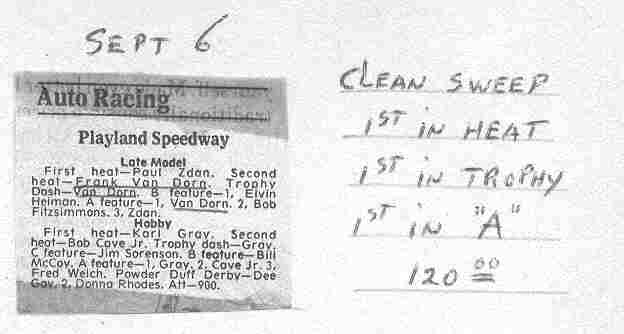 SEPT 6
Auto Racing
Playland Speedway
Late Model
First heat—Paul Zdan. Second
heat—Frank Van Dorn. Trophy
Dash—Van Dorn. B feature—1, Elvin
Heiman. A feature—1, Van Dorn. 2, Bob
Fitzsimmons. 3, Zdan.
Hobby
First heat—Karl Gray. Second
heat—Bob Cave Jr. Trophy dash—Gray.
C feature—Jim Sorenson. B feature—Bill
McCoy. A feature—1, Gray. 2, Cave Jr. 3,
Fred Welch. Powder Duff Derby—Dee
Gay. 2, Donna Rhodes. Att—900.
CLEAN SWEEP
1ST IN HEAT
1ST IN TROPHY
1ST IN "A"
120 00